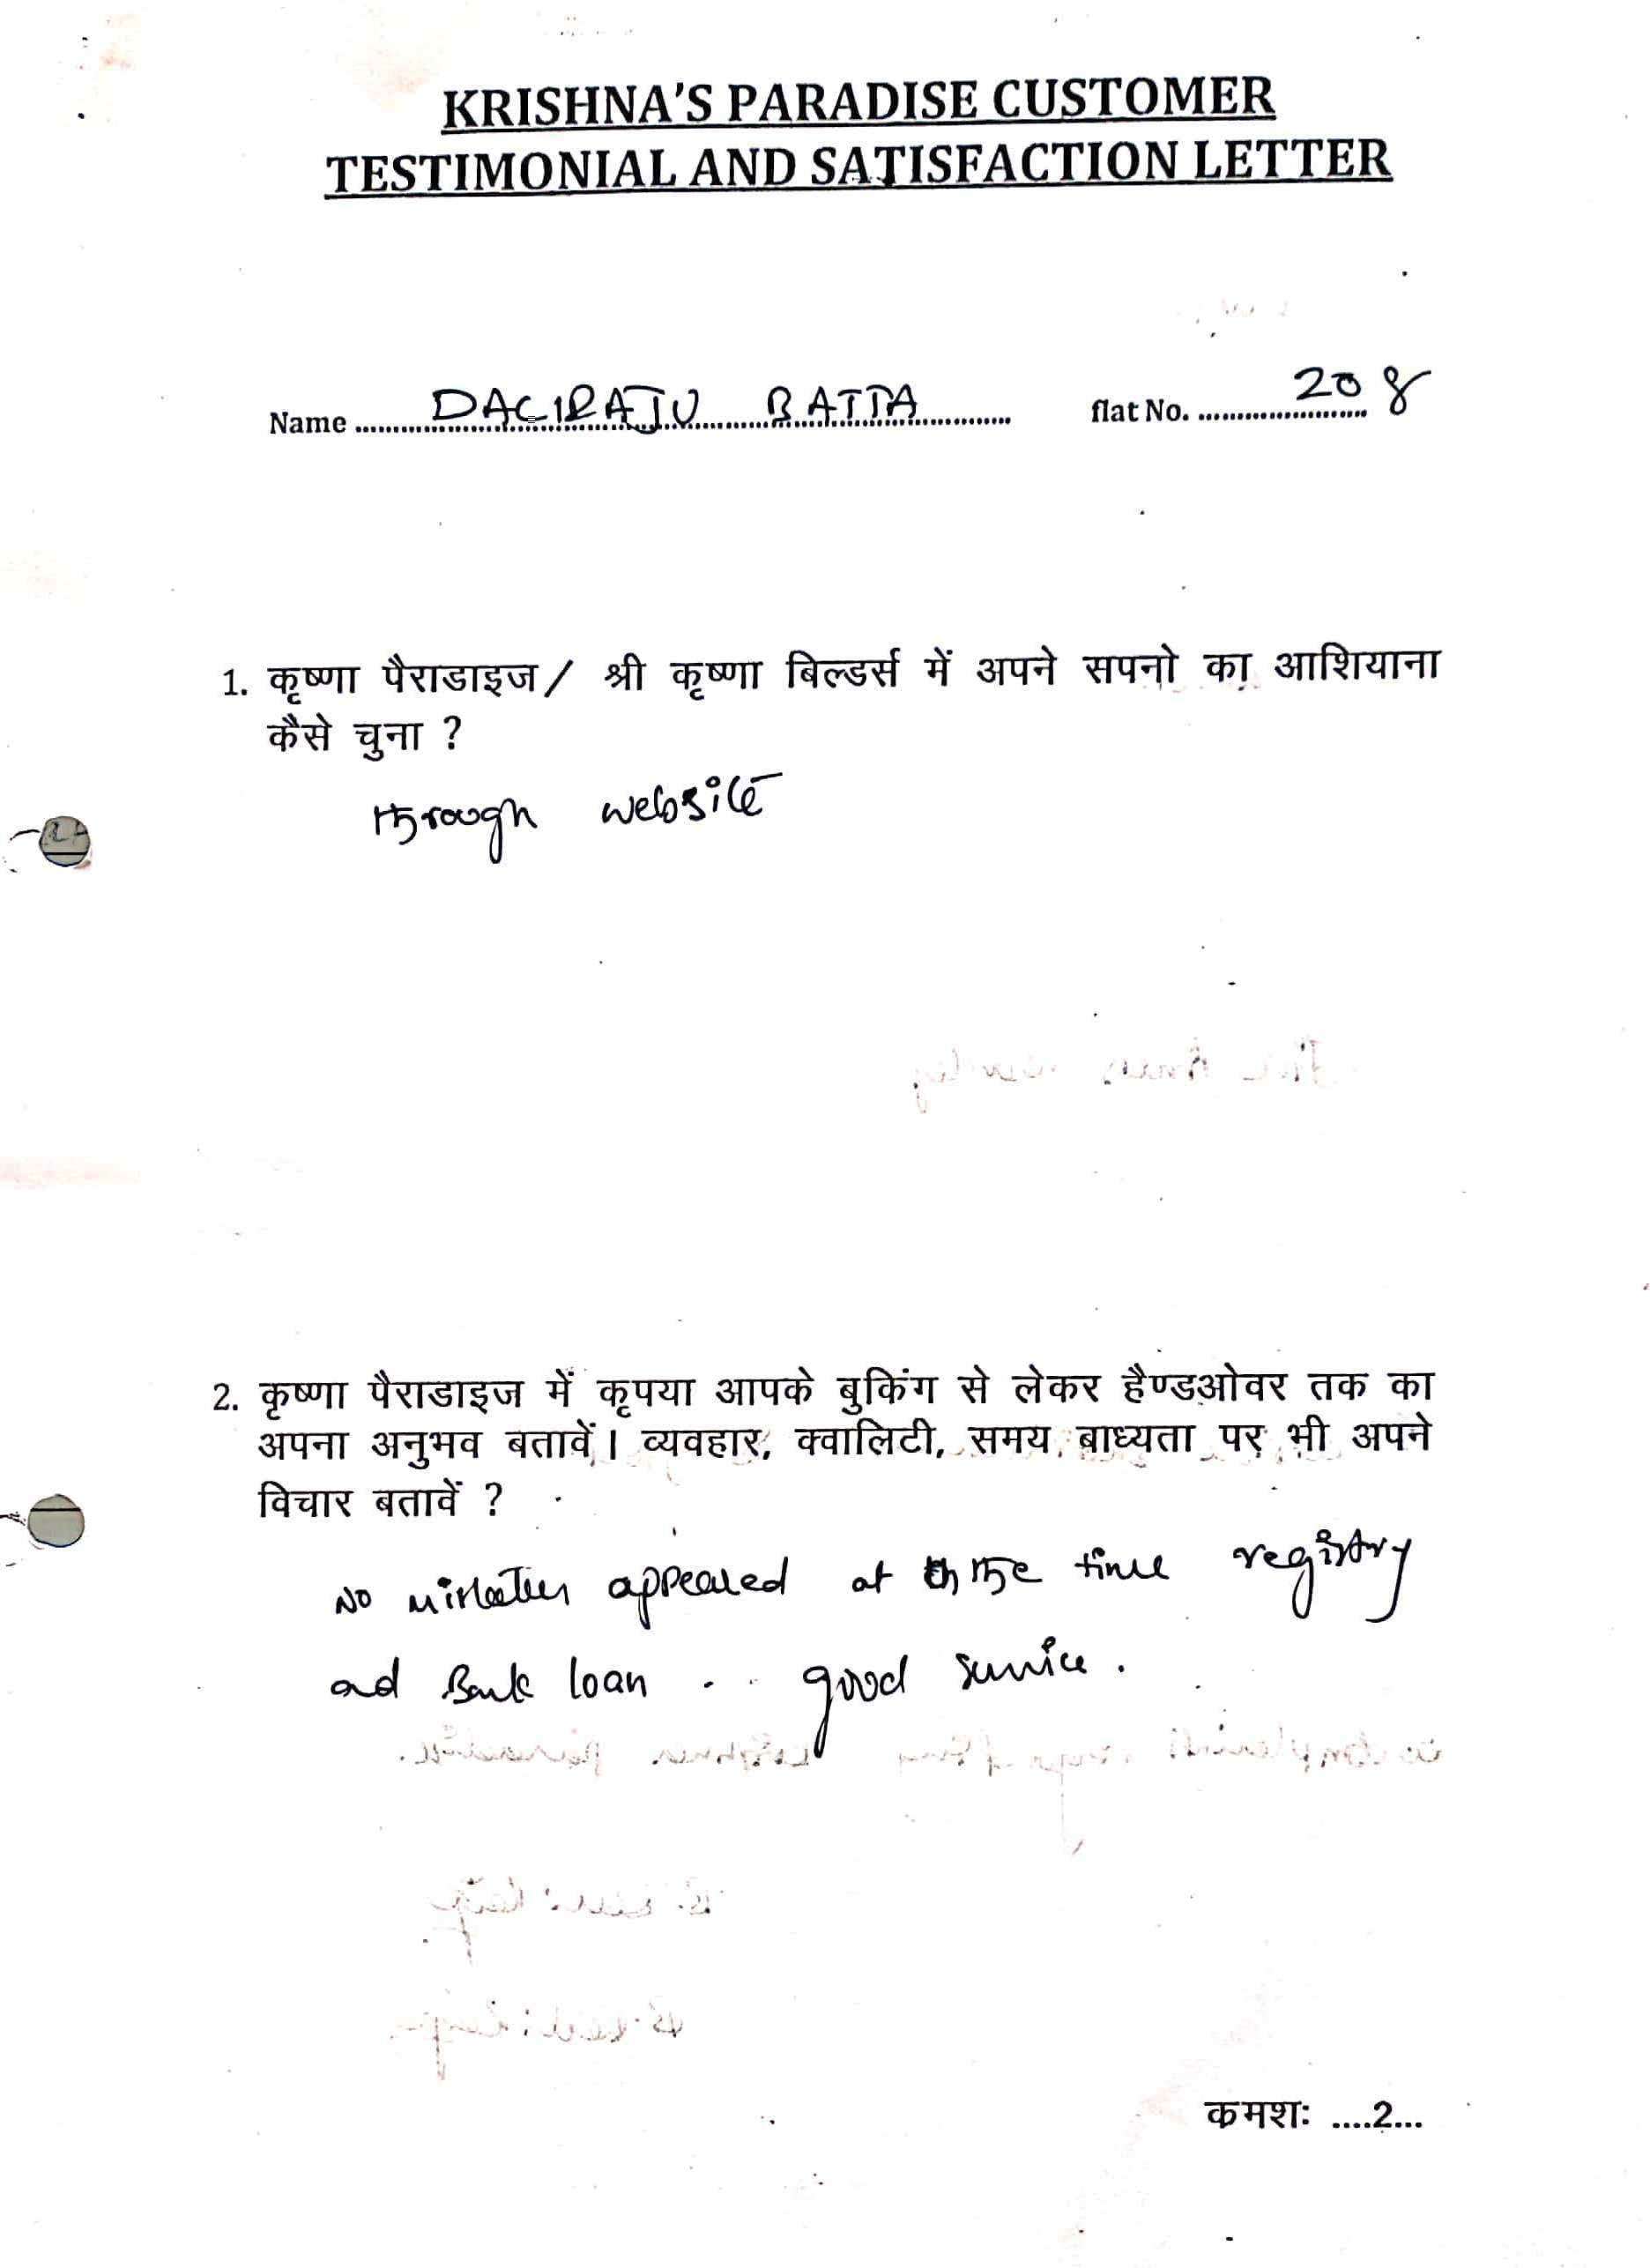 KRISHNA'S PARADISE CUSTOMER
TESTIMONIAL AND SATISFACTION LETTER
Name ........ DAGIRAJU BATTA ........ flat No. ........ 208
1. कृष्णा पैराडाइज/ श्री कृष्णा बिल्डर्स में अपने सपनो का आशियाना
कैसे चुना ?
through website
2. कृष्णा पैराडाइज में कृपया आपके बुकिंग से लेकर हैण्डओवर तक का
अपना अनुभव बतावें। व्यवहार, क्वालिटी, समय बाध्यता पर भी अपने
विचार बतावें ?
No appeared at the time registry
and Bank loan . . good service .
कमशः ....2...